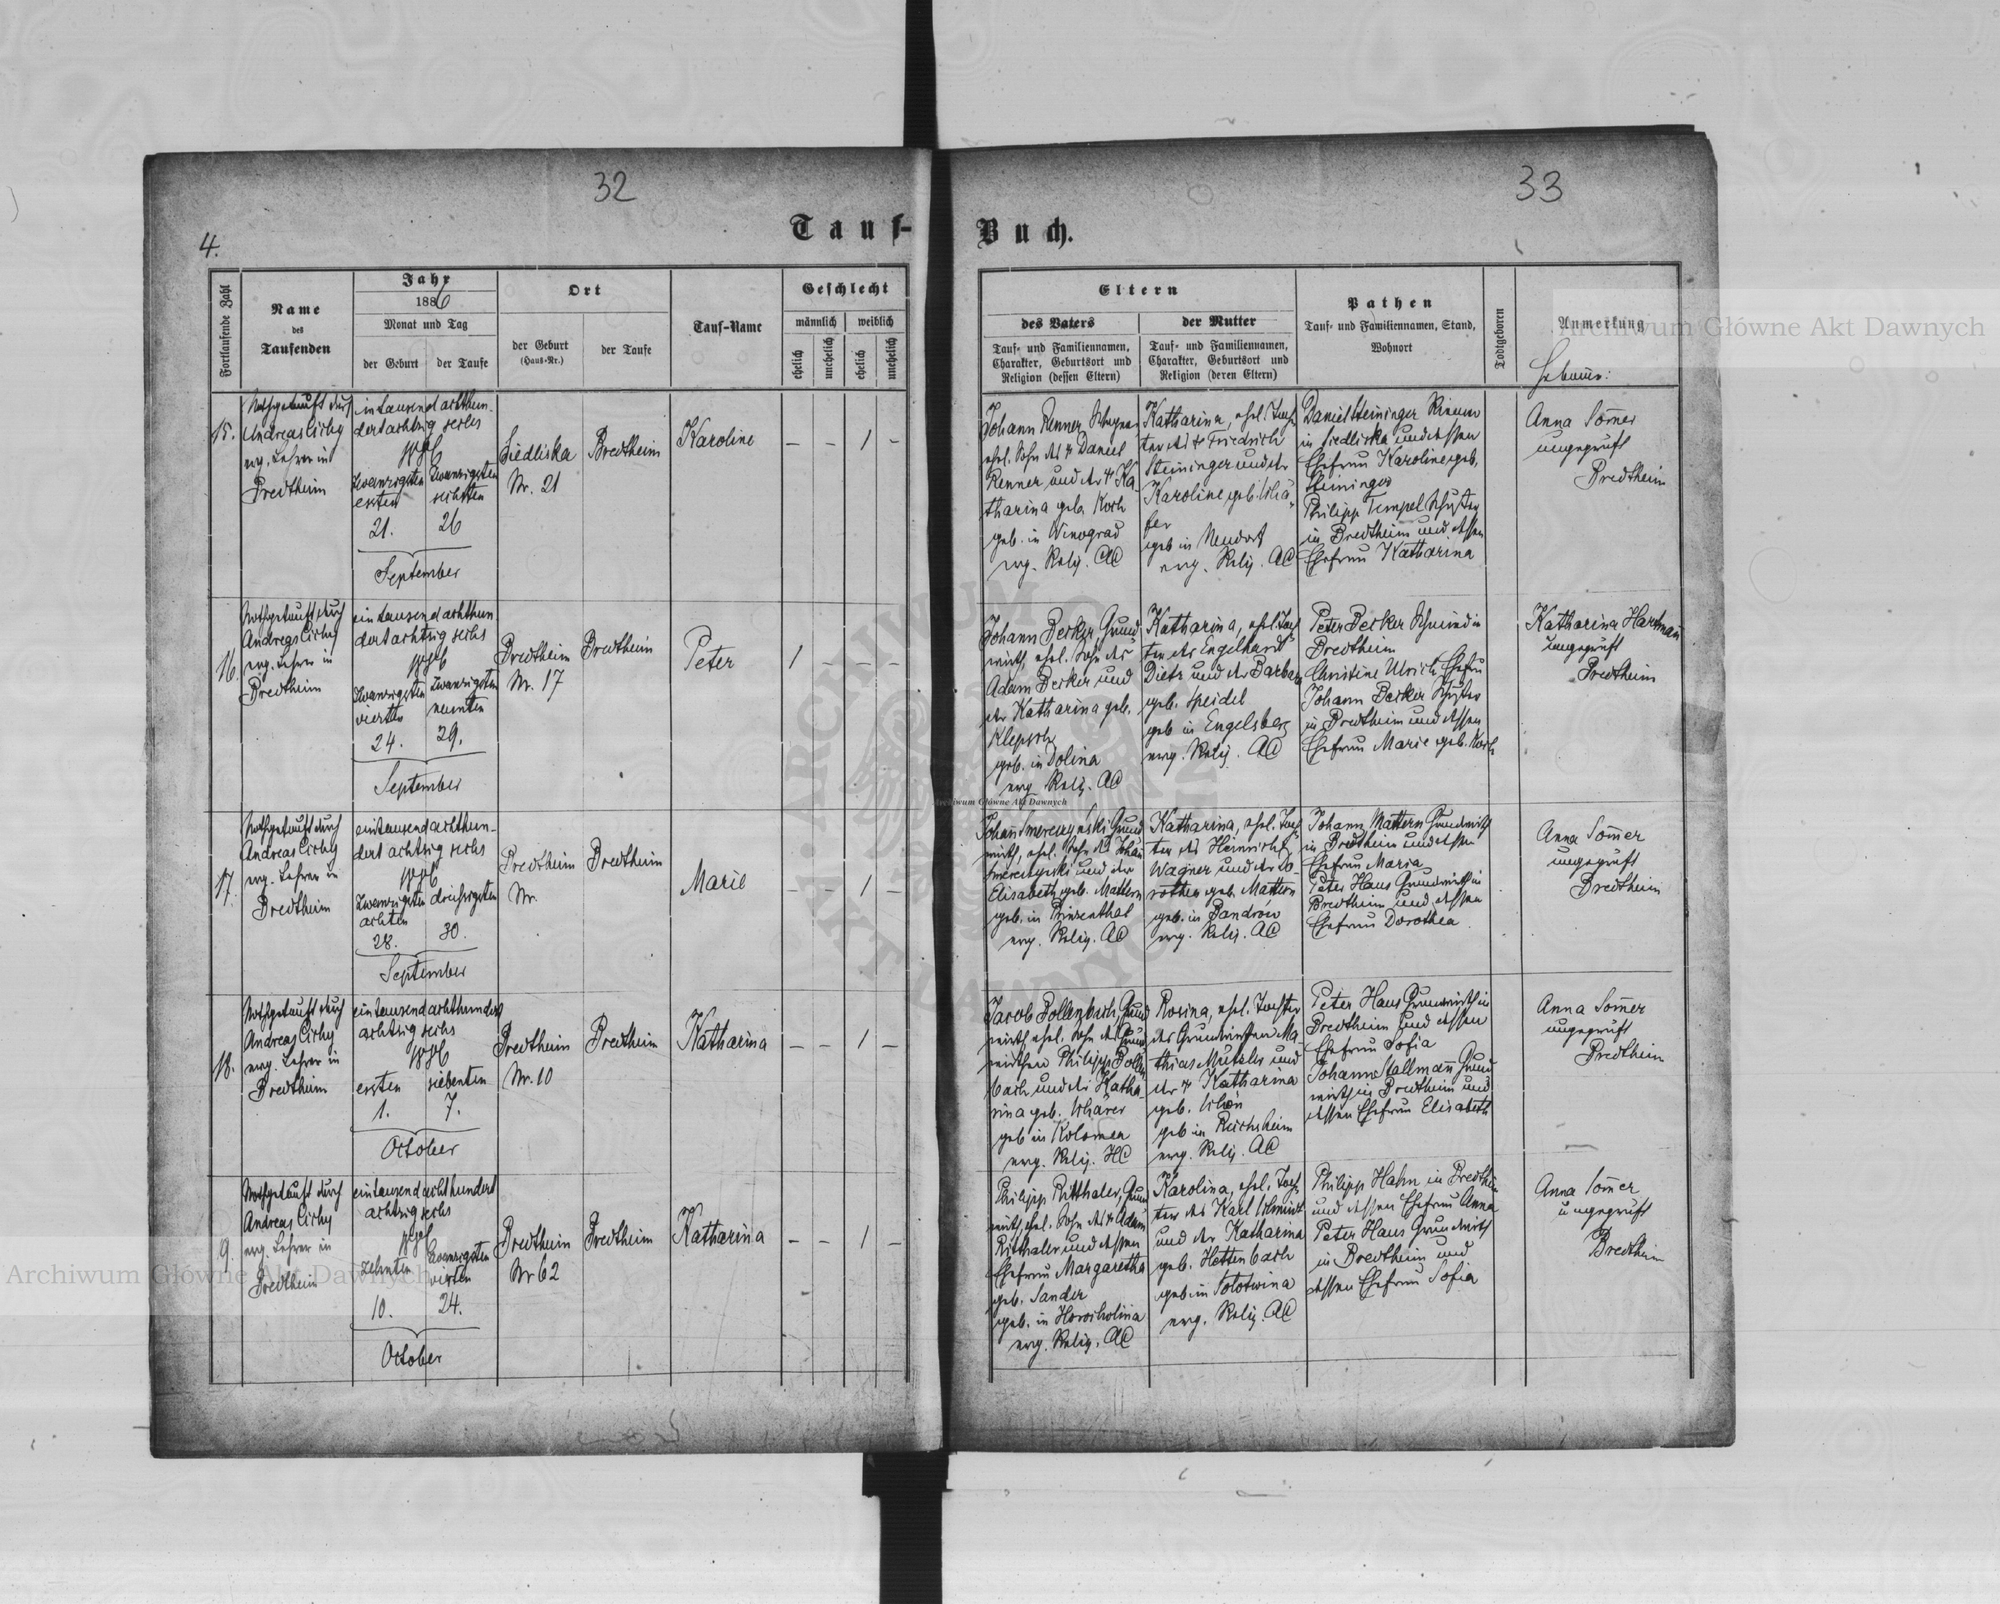 32
33
4.
Tauf-Buch.
Fortlaufende Zahl
Name
des
Taufenden
Jahr
1886
Monat und Tag
der Geburt
der Taufe
Ort
der Geburt
(Haus-Nr.)
der Taufe
Tauf-Name
Geschlecht
männlich
weiblich
ehelich
unehelich
ehelich
unehelich
Eltern
des Vaters
Tauf- und Familiennamen,
Charakter, Geburtsort und
Religion (dessen Eltern)
der Mutter
Tauf- und Familiennamen,
Charakter, Geburtsort und
Religion (deren Eltern)
Pathen
Tauf- und Familiennamen, Stand,
Wohnort
Todtgeboren
Anmerkung
15.
Nothgetauft durch
Andreas Cichy
evg. Lehrer in
Bredtheim
eintausend achthun-
dert achtzig sechs
zwanzigsten
ersten
21.
zwanzigsten
sechsten
26
September
Siedliska
Nr. 21
Bredtheim
Karoline
– – 1 –
Johann Renner
ehel. Sohn des † Daniel
Renner und der † Ka-
tharina geb. Koch
geb. in Winograd
evg. Relig. AC
Katharina, ehel. Toch-
ter des † Friedrich
Steininger und der
Karoline geb. Schä-
fer
geb in Neudorf
evg. Relig. AC
Daniel Steininger
in Siedliska und dessen
Ehefrau Karoline geb.
Steininger
Philipp Tempel Schuster
in Bredtheim und dessen
Ehefrau Katharina
Anna Somer
ungeprüft
Bredtheim
16.
Nothgetauft durch
Andreas Cichy
evg. Lehrer in
Bredtheim
eintausend achthun
dert achtzig sechs
zwanzigsten
vierten
24.
zwanzigsten
neunten
29.
September
Bredtheim
Nr. 17
Bredtheim
Peter
1 – – –
Johann Becker Grund
wirth, ehel. Sohn des
Adam Becker und
der Katharina geb.
Klepsch
geb. in Dolina
evg Relig. AC
Katharina, ehel. Toch
ter des Engelhard
Dietz und der Barbara
geb. Speidel
geb in Engelsberg
evg. Relig. AC
Peter Becker Schmied in
Bredtheim
Christine Ulrich Ehefrau
Johann Becker Schuster
in Bredtheim und dessen
Ehefrau Marie geb. Koch
Katharina Hartman
ungeprüft
Bredtheim
17.
Nothgetauft durch
Andreas Cichy
evg. Lehrer in
Bredtheim
eintausend achthun-
dert achtzig sechs
zwanzigsten
achten
28.
dreißigsten
30.
September
Bredtheim
Nr.
Bredtheim
Marie
– – 1 –
Johan Smereczynski Grund
wirth, ehel. Sohn des Johan
Smereczynski und der
Elisabeth geb. Mattern
geb. in Prinzenthal
evg. Relig. AC
Katharina, ehel. Toch
ter des Heinrich
Wagner und der Do-
rothea geb. Mattern
geb. in Bandrów
evg. Relig. AC
Johann Mattern Grundwirth
in Bredtheim und dessen
Ehefrau Maria
Peter Haus Grundwirth in
Bredtheim und dessen
Ehefrau Dorothea
Anna Somer
ungeprüft
Bredtheim
18.
Nothgetauft durch
Andreas Cichy
evg. Lehrer in
Bredtheim
eintausend achthundert
achtzig sechs
ersten
1.
siebenten
7.
October
Bredtheim
Nr. 10
Bredtheim
Katharina
– – 1 –
Jacob Bollenbach Grund
wirth, ehel. Sohn des Grund
wirthen Philipp Bollen
bach und der Katha-
rina geb. Schärer
geb in Kolomea
evg. Relig. HC
Rosina, ehel. Tochter
des Grundwirthen Ma-
thias Mutzler und
der † Katharina
geb. Schön
geb in Reichsheim
evg. Relig. AC
Peter Haus Grundwirth in
Bredtheim und dessen
Ehefrau Sofia
Johann Stallman Grund
wirth in Bredtheim und
dessen Ehefrau Elisabeth
Anna Somer
ungeprüft
Bredtheim
9.
Nothgetauft durch
Andreas Cichy
evg. Lehrer in
Bredtheim
eintausend achthundert
achtzig sechs
zehnten
10.
zwanzigsten
vierten
24.
October
Bredtheim
Nr 62
Bredtheim
Katharina
– – 1 –
Philipp Ritthaler, Grund
wirth, ehel. Sohn des † Adam
Ritthaler und dessen
Ehefrau Margaretha
geb. Sander
geb. in Horocholina
evg. Relig. AC
Karolina, ehel. Toch-
ter des Karl Schmidt
und der Katharina
geb. Hettenbach
geb. in Solotwina
evg. Relig. AC
Philipp Hahn in Bredtheim
und dessen Ehefrau Anna
Peter Haus Grundwirth
in Bredtheim und
dessen Ehefrau Sofia
Anna Somer
ungeprüft
Bredtheim
Archiwum Główne Akt Dawnych
Archiwum Główne Akt Dawnych
Archiwum Główne Akt Dawnych
ARCHIWUM GŁÓWNE AKT DAWNYCH